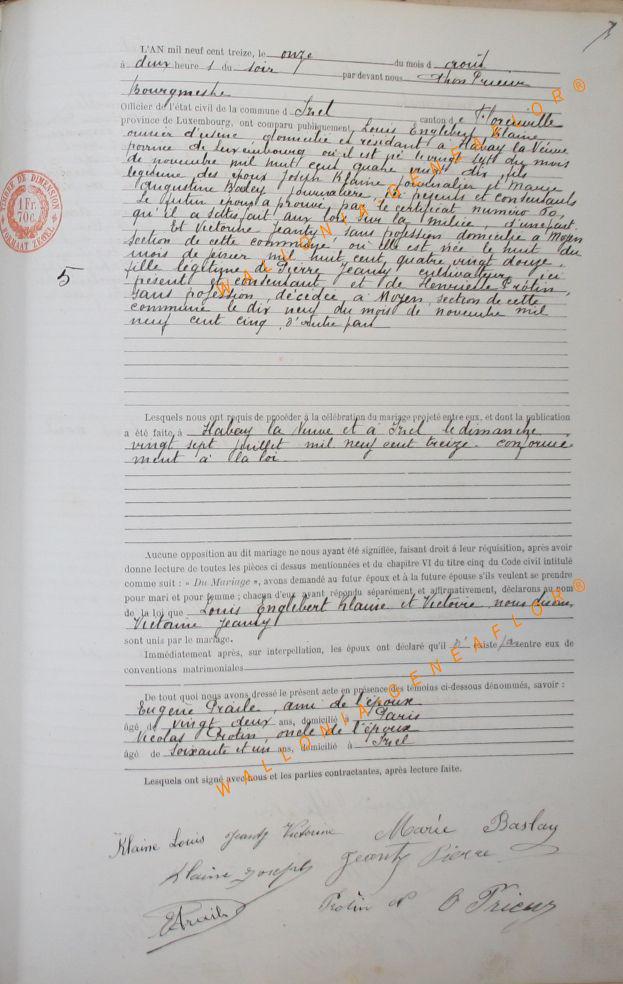 L'AN mil neuf cent treize, le onze du mois d août
à deux heure s du soir par devant nous Thos Prieur
bourgmestre
Officier de l'état civil de la commune d Izel canton d e Florenville
province de Luxembourg, ont comparu publiquement, Louis Englebert Klaine
ouvrier d'usine domicilié et résidant à Habay la Veuve
province de Luxembourg où il est né le vingt sept du mois
de novembre mil huit cent quatre vingt dix fils
légitime des époux Joseph Klaine journalier et Marie
Augustine journalière, ici présents et consentants
Le futur époux a prouvé par le certificat numéro 50,
qu'il a satisfait aux lois sur la milice, d'une part.
Et Victorine Jeanty sans profession domiciliée à Moyen
section de cette commune où elle est née le huit du
mois de février mil huit cent quatre vingt douze.
fille légitime de Pierre Jeanty cultivateur, ici
présent et consentant et de Henriette Protin,
sans profession, décédée à Moyen, section de cette
commune le dix neuf du mois de novembre mil
neuf cent cinq, d'autre part
5
TIMBRE DE DIMENSION
1 Fr.
70c.
FORMAAT ZEGEL
Lesquels nous ont requis de procéder à la célébration du mariage projeté entre eux, et dont la publication
a été faite à Habay la Veuve et à Izel le dimanche
vingt sept juillet mil neuf cent treize. conformé
ment à la loi.
Aucune opposition au dit mariage ne nous ayant été signifiée, faisant droit à leur réquisition, après avoir
donné lecture de toutes les pièces ci dessus mentionnées et du chapitre VI du titre cinq du Code civil intitulé
comme suit : « Du Mariage », avons demandé au futur époux et à la future épouse s'ils veulent se prendre
pour mari et pour femme ; chacun d'eux ayant répondu séparément et affirmativement, déclarons au nom
de la loi que Louis Englebert Klaine et Victoire nous disons
Victorine Jeanty
sont unis par le mariage.
Immédiatement après, sur interpellation, les époux ont déclaré qu'il n' existe pas entre eux de
conventions matrimoniales
De tout quoi nous avons dressé le présent acte en présence des témoins ci-dessous dénommés, savoir :
Eugène Praile, ami de l'époux
âgé de vingt deux ans, domicilié à Paris
Nicolas Protin, oncle de l'époux
âgé de soixante et un ans, domicilié à Izel
Lesquels ont signé avec nous et les parties contractantes, après lecture faite.
Klaine Louis Jeanty Victorine Marie Baslay
Klaine Joseph Jeanty Pierre
EPraile Protin N Prieur
WALLONIA GENEAFLOR ®
WALLONIA GENEAFLOR ®